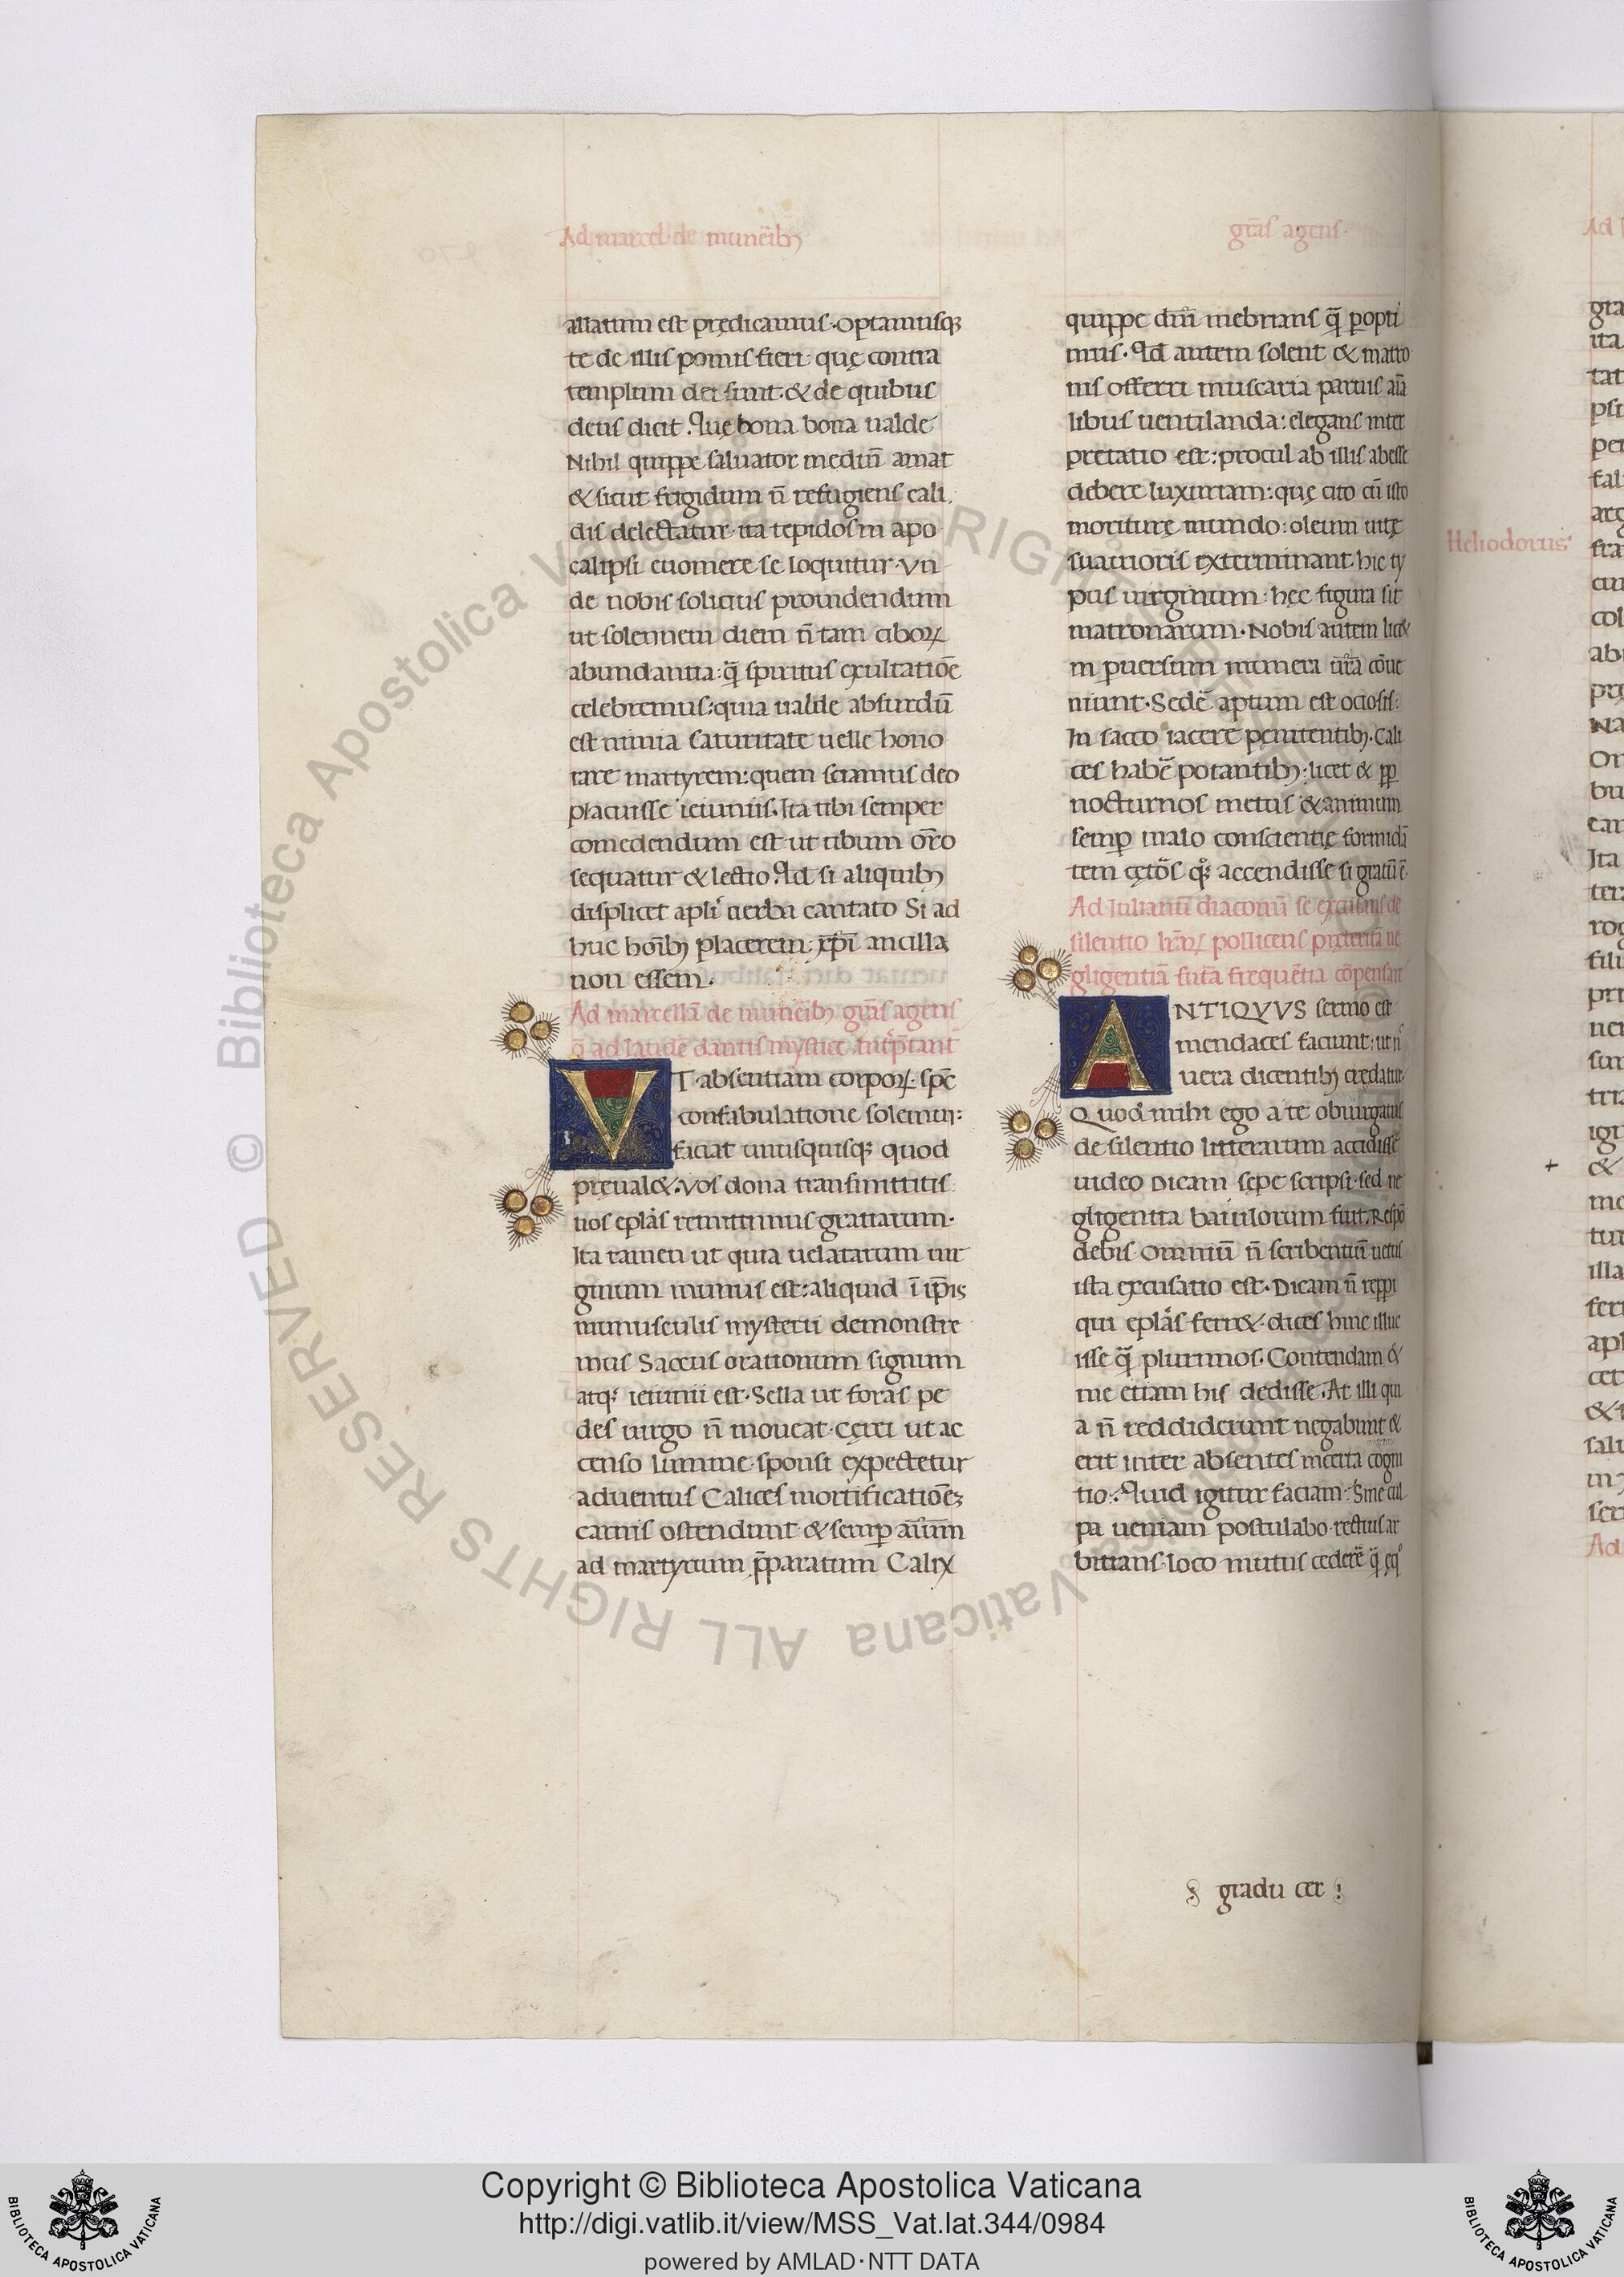 Ad marcel· de munēibꝫ
gr̄as agens·
allatum est prędicamus· optamusqꝫ
te de illis pomis fieri· quę contra
templum dei sunt· & de quibus
deus dicit· Quę bona bona ualde
Nihil quippe saluator mediū amat
& sicut frigidum n̄ refugiens cali
dis delectatur· ita tepidos in apo
calipsi euomere se loquitur· Vn
de nobis solicitius prouidendum
ut solennem diem n̄ tam ciboꝝ
abundantia: q̄ spiritus exultatiōe
celebremus: quia ualde absurdū
est nimia saturitate uelle hono
rare martyrem: quem sciamus deo
placuisse ieiuniis. Ita tibi semper
comedendum est ut cibum or̄o
sequatur & lectio. Qd si aliquibꝫ
displicet apli uerba cantato Si ad
huc hoībꝫ placerem: xp̄i ancilla
non essem.
Ad marcellā de munēibꝫ gr̄as agens
q̄ ad laudē dantis mystice int̄p̄tant̄
VT absentiam corpoꝝ· sp̄c
confabulatione solemur:
faciat unusquisqꝫ quod
pręual&. Vos dona transmittitis
nos epl̄as remittimus gratiarum·
Ita tamen ut quia uelatarum uir
ginum munus est: aliquid ī ip̄is
munusculis mysterii demonstre
mus Saccus orationum signum
atqꝫ ieiunii est· Sella ut foras pe
des uirgo n̄ moueat· Cęrei ut ac
censo lumine· sponsi expectetur
aduentus Calices mortificatiōeꝫ
carnis ostendunt & semꝑ aīum
ad martyrium p̄paratum Calix
quippe dn̄i inebrians q̄ ꝑopti
mus· Qd autem solent & matro
nis offerri muscaria paruis aīa
libus uentilanda: elegans inter
pretatio est: procul ab illis abesse
debere luxuriam: quę cito cū isto
moriturę mundo: oleum uitę
suauioris exterminant· hic ty
pus uirginum· hęc figura sit
matronarum· Nobis autem lic&
in puersum munera ur̄a cōue
niunt· Sedē aptum est ociosis:
In sacco iacere pęnitentibꝫ· Cali
ces habē potantibꝫ: licet & ꝓp
nocturnos metus & animum
semꝑ malo conscientię formidā
tem cętos qꝫ accendisse si gratū ē·
Ad Iulianū diaconū se excusans de
silentio lr̄aꝝ pollicens pręteritā ne
gligentiā futa frequētia cōpensari
ANTIQVVS sermo est
mendaces faciunt: ut n̄
uera dicentibꝫ credatur·
Quod mihi ego a te obiurgatus
de silentio litterarum accidisse
uideo Dicam sępe scripsi· sed ne
gligentia baiulorum fuit. Respō
debis Omniū n̄ scribentiū uetus
ista excusatio est· Dicam n̄ repperi
qui epl̄as ferr&· dices hinc illuc
isse q̄ plurimos· Contendam &
me etiam his dedisse· At illi qui
a n̄ reddiderunt negabunt &
erit inter absentes incerta cogni
tio· Quid igitur faciam· Sine cul
pa ueniam postulabo· rectius ar
bitrans· loco motus cedere q̄ ęq̊
gradu cer
Heliodorus
Copyright © Biblioteca Apostolica Vaticana
http://digi.vatlib.it/view/MSS_Vat.lat.344/0984
powered by AMLAD·NTT DATA
© Biblioteca Apostolica Vaticana ALL RIGHTS RESERVED
BIBLIOTECA APOSTOLICA VATICANA
BIBLIOTECA APOSTOLICA VATICANA